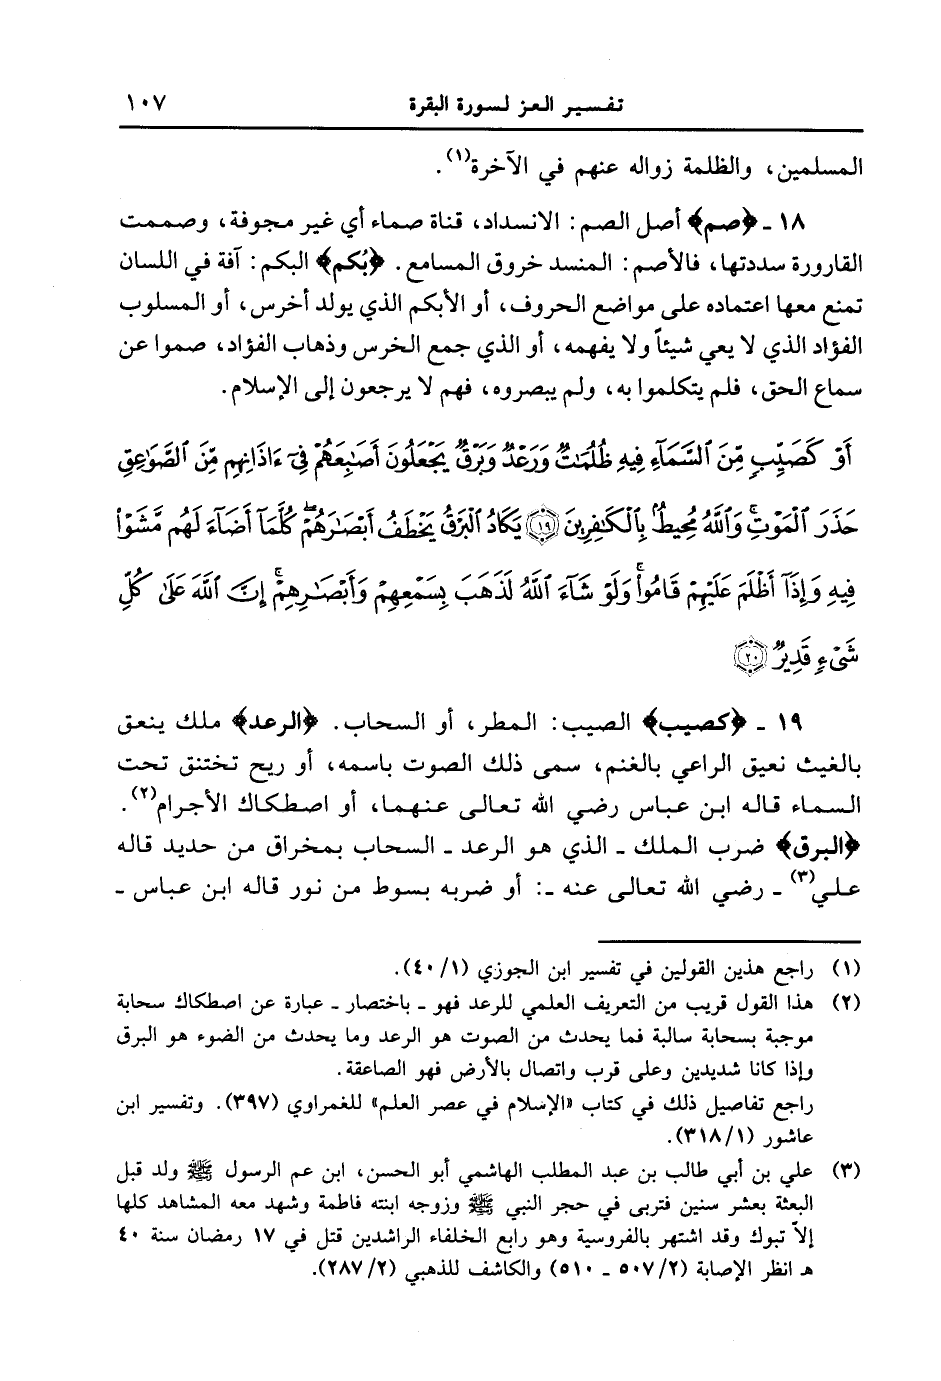 تفسير العز لسورة البقرة ١٠٧
المسلمين، والظلمة زواله عنهم في الآخرة(١).
١٨ ـ ﴿صم﴾ أصل الصم: الانسداد، قناة صماء أي غير مجوفة، وصممت
القارورة سددتها، فالأصم: المنسد خروق المسامع. ﴿بُكم﴾ البكم: آفة في اللسان
تمنع معها اعتماده على مواضع الحروف، أو الأبكم الذي يولد أخرس، أو المسلوب
الفؤاد الذي لا يعي شيئاً ولا يفهمه، أو الذي جمع الخرس وذهاب الفؤاد، صموا عن
سماع الحق، فلم يتكلموا به، ولم يبصروه، فهم لا يرجعون إلى الإسلام.
أَوْ كَصَيِّبٍ مِّنَ ٱلسَّمَآءِ فِيهِ ظُلُمَٰتٌ وَرَعْدٌ وَبَرْقٌ يَجْعَلُونَ أَصَٰبِعَهُمْ فِىٓ ءَاذَانِهِم مِّنَ ٱلصَّوَٰعِقِ
حَذَرَ ٱلْمَوْتِ ۚ وَٱللَّهُ مُحِيطٌۢ بِٱلْكَٰفِرِينَ ﴿١٩﴾ يَكَادُ ٱلْبَرْقُ يَخْطَفُ أَبْصَٰرَهُمْ ۖ كُلَّمَآ أَضَآءَ لَهُم مَّشَوْا۟
فِيهِ وَإِذَآ أَظْلَمَ عَلَيْهِمْ قَامُوا۟ ۚ وَلَوْ شَآءَ ٱللَّهُ لَذَهَبَ بِسَمْعِهِمْ وَأَبْصَٰرِهِمْ ۚ إِنَّ ٱللَّهَ عَلَىٰ كُلِّ
شَىْءٍ قَدِيرٌ ﴿٢٠﴾
١٩ ـ ﴿كصيب﴾ الصيب: المطر، أو السحاب. ﴿الرعد﴾ ملك ينعق
بالغيث نعيق الراعي بالغنم، سمى ذلك الصوت باسمه، أو ريح تختنق تحت
السماء قاله ابن عباس رضي الله تعالى عنهما، أو اصطكاك الأجرام(٢).
﴿البرق﴾ ضرب الملك ـ الذي هو الرعد ـ السحاب بمخراق من حديد قاله
علي(٣) ـ رضي الله تعالى عنه ـ: أو ضربه بسوط من نور قاله ابن عباس ـ
(١) راجع هذين القولين في تفسير ابن الجوزي (٤٠/١).
(٢) هذا القول قريب من التعريف العلمي للرعد فهو ـ باختصار ـ عبارة عن اصطكاك سحابة
موجبة بسحابة سالبة فما يحدث من الصوت هو الرعد وما يحدث من الضوء هو البرق
وإذا كانا شديدين وعلى قرب واتصال بالأرض فهو الصاعقة.
راجع تفاصيل ذلك في كتاب «الإسلام في عصر العلم» للغمراوي (٣٩٧). وتفسير ابن
عاشور (٣١٨/١).
(٣) علي بن أبي طالب بن عبد المطلب الهاشمي أبو الحسن، ابن عم الرسول ﷺ ولد قبل
البعثة بعشر سنين فتربى في حجر النبي ﷺ وزوجه ابنته فاطمة وشهد معه المشاهد كلها
إلاّ تبوك وقد اشتهر بالفروسية وهو رابع الخلفاء الراشدين قتل في ١٧ رمضان سنة ٤٠
هـ انظر الإصابة (٥٠٧/٢ ـ ٥١٠) والكاشف للذهبي (٢٨٧/٢).